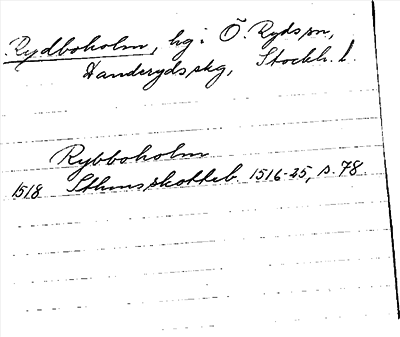 Rydboholm, hg: Ö. Ryds sn,
Danderyds skg, Stockh. l.
Rybboholm
1518 Sthms skotteb. 1516-25, s. 78.